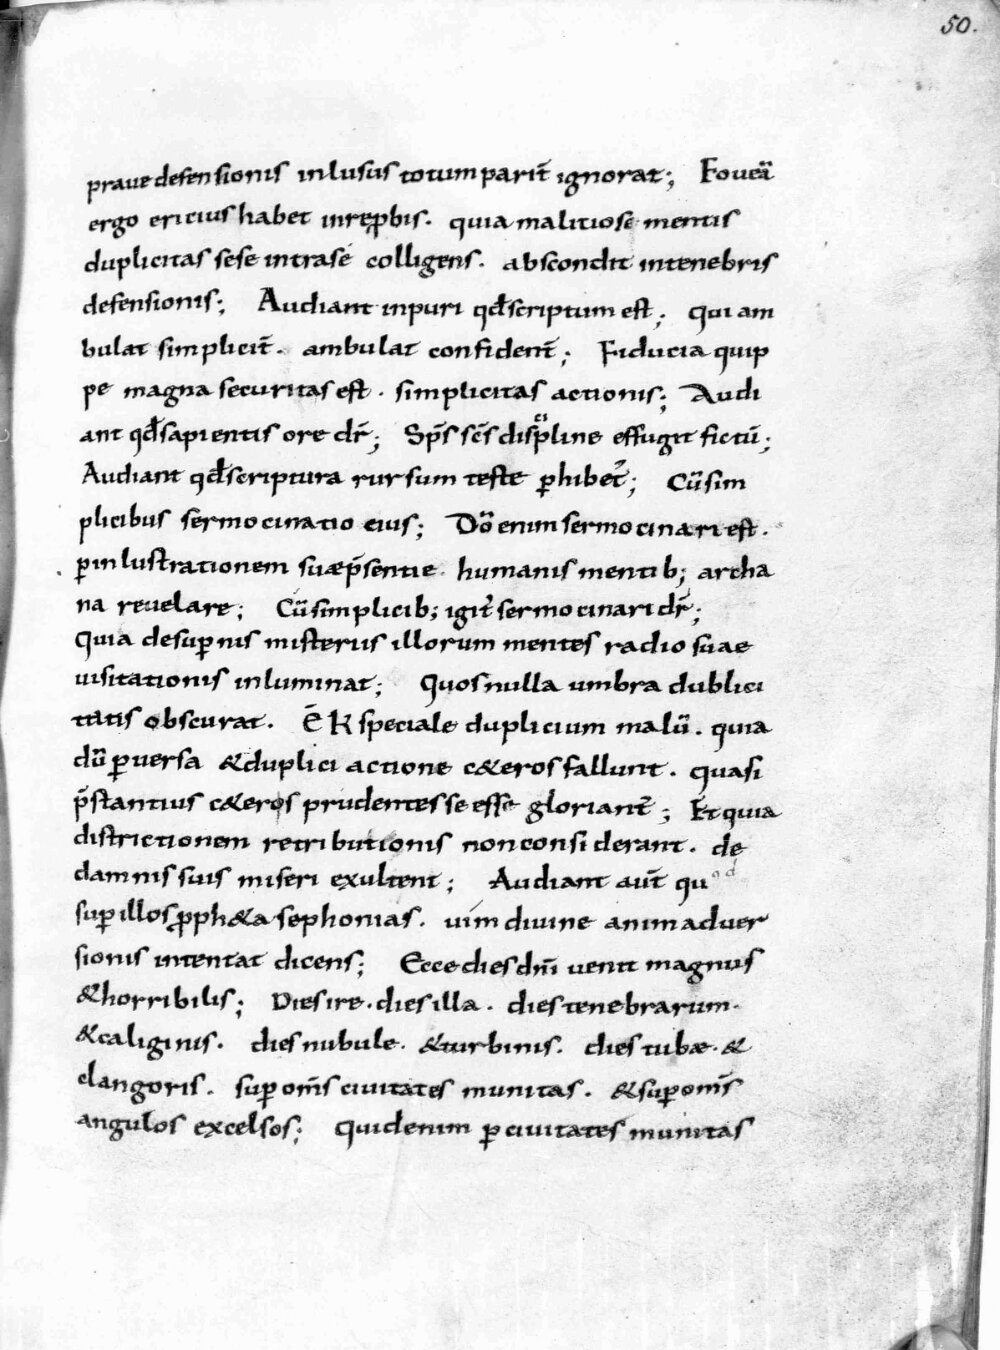 50.
praue defensionis inlusus totum parit̄ ignorat; Foueā
ergo ericius habet inrep̱bis. quia malitiose mentis
duplicitas sese intrase colligens. abscondit intenebris
defensionis; Audiant inpuri qđ scriptum est; Qui am
bulat simplicit̄. ambulat confident̄; Fiducia quip
pe magna securitas est. simplicitas actionis; Audi
ant qđ sapientis ore dr̄; Sp̄s sc̄s disp̱line effugit fictū;
Audiant qđ scriptura rursum teste ꝑhibet̄; Cū sim
plicibus sermocinatio eius; Dō enim sermocinari est.
ꝑ inlustrationem suæ p̄sentie humanis mentib; archa
na reuelare; Cū simplicib; igit̄ sermocinari dr̄;
Quia desuꝑnis misteriis illorum mentes radio suae
uisitationis inluminat; Quos nulla umbra dublici
tatis obscurat. Ē k̄ speciale duplicium malū. quia
dū ꝑuersa & duplici actione c&eros fallunt. quasi
p̄stantius c&eros prudentes se esse gloriant̄; Et quia
districtionem retributionis non considerant. de
damnis suis miseri exultent; Audiant aut̄ quod
suꝑ illos ꝓph&a sephonias. uim diuine animaduer
sionis intentat dicens; Ecce dies dn̄i uenit magnus
& horribilis; Dies ire. dies illa. dies tenebrarum.
& caliginis. dies nubule. & turbinis. dies tubæ. &
clangoris. suꝑ om̄s ciuitates munitas. & suꝑ om̄s
angulos excelsos; Quid enim ꝑ ciuitates munitas